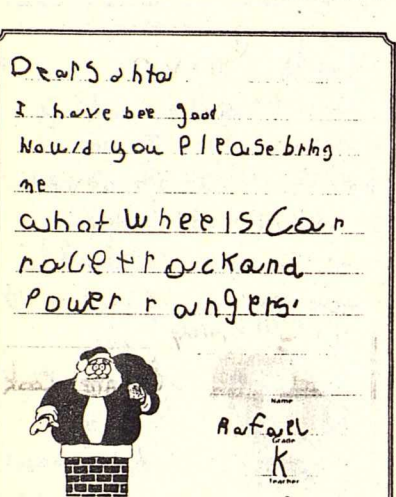 Dear Santa
I have bee good
Would you Please bring
me
a hot wheels Car
race track and
Power rangers.
Name
Rafael
Grade
K
Teacher